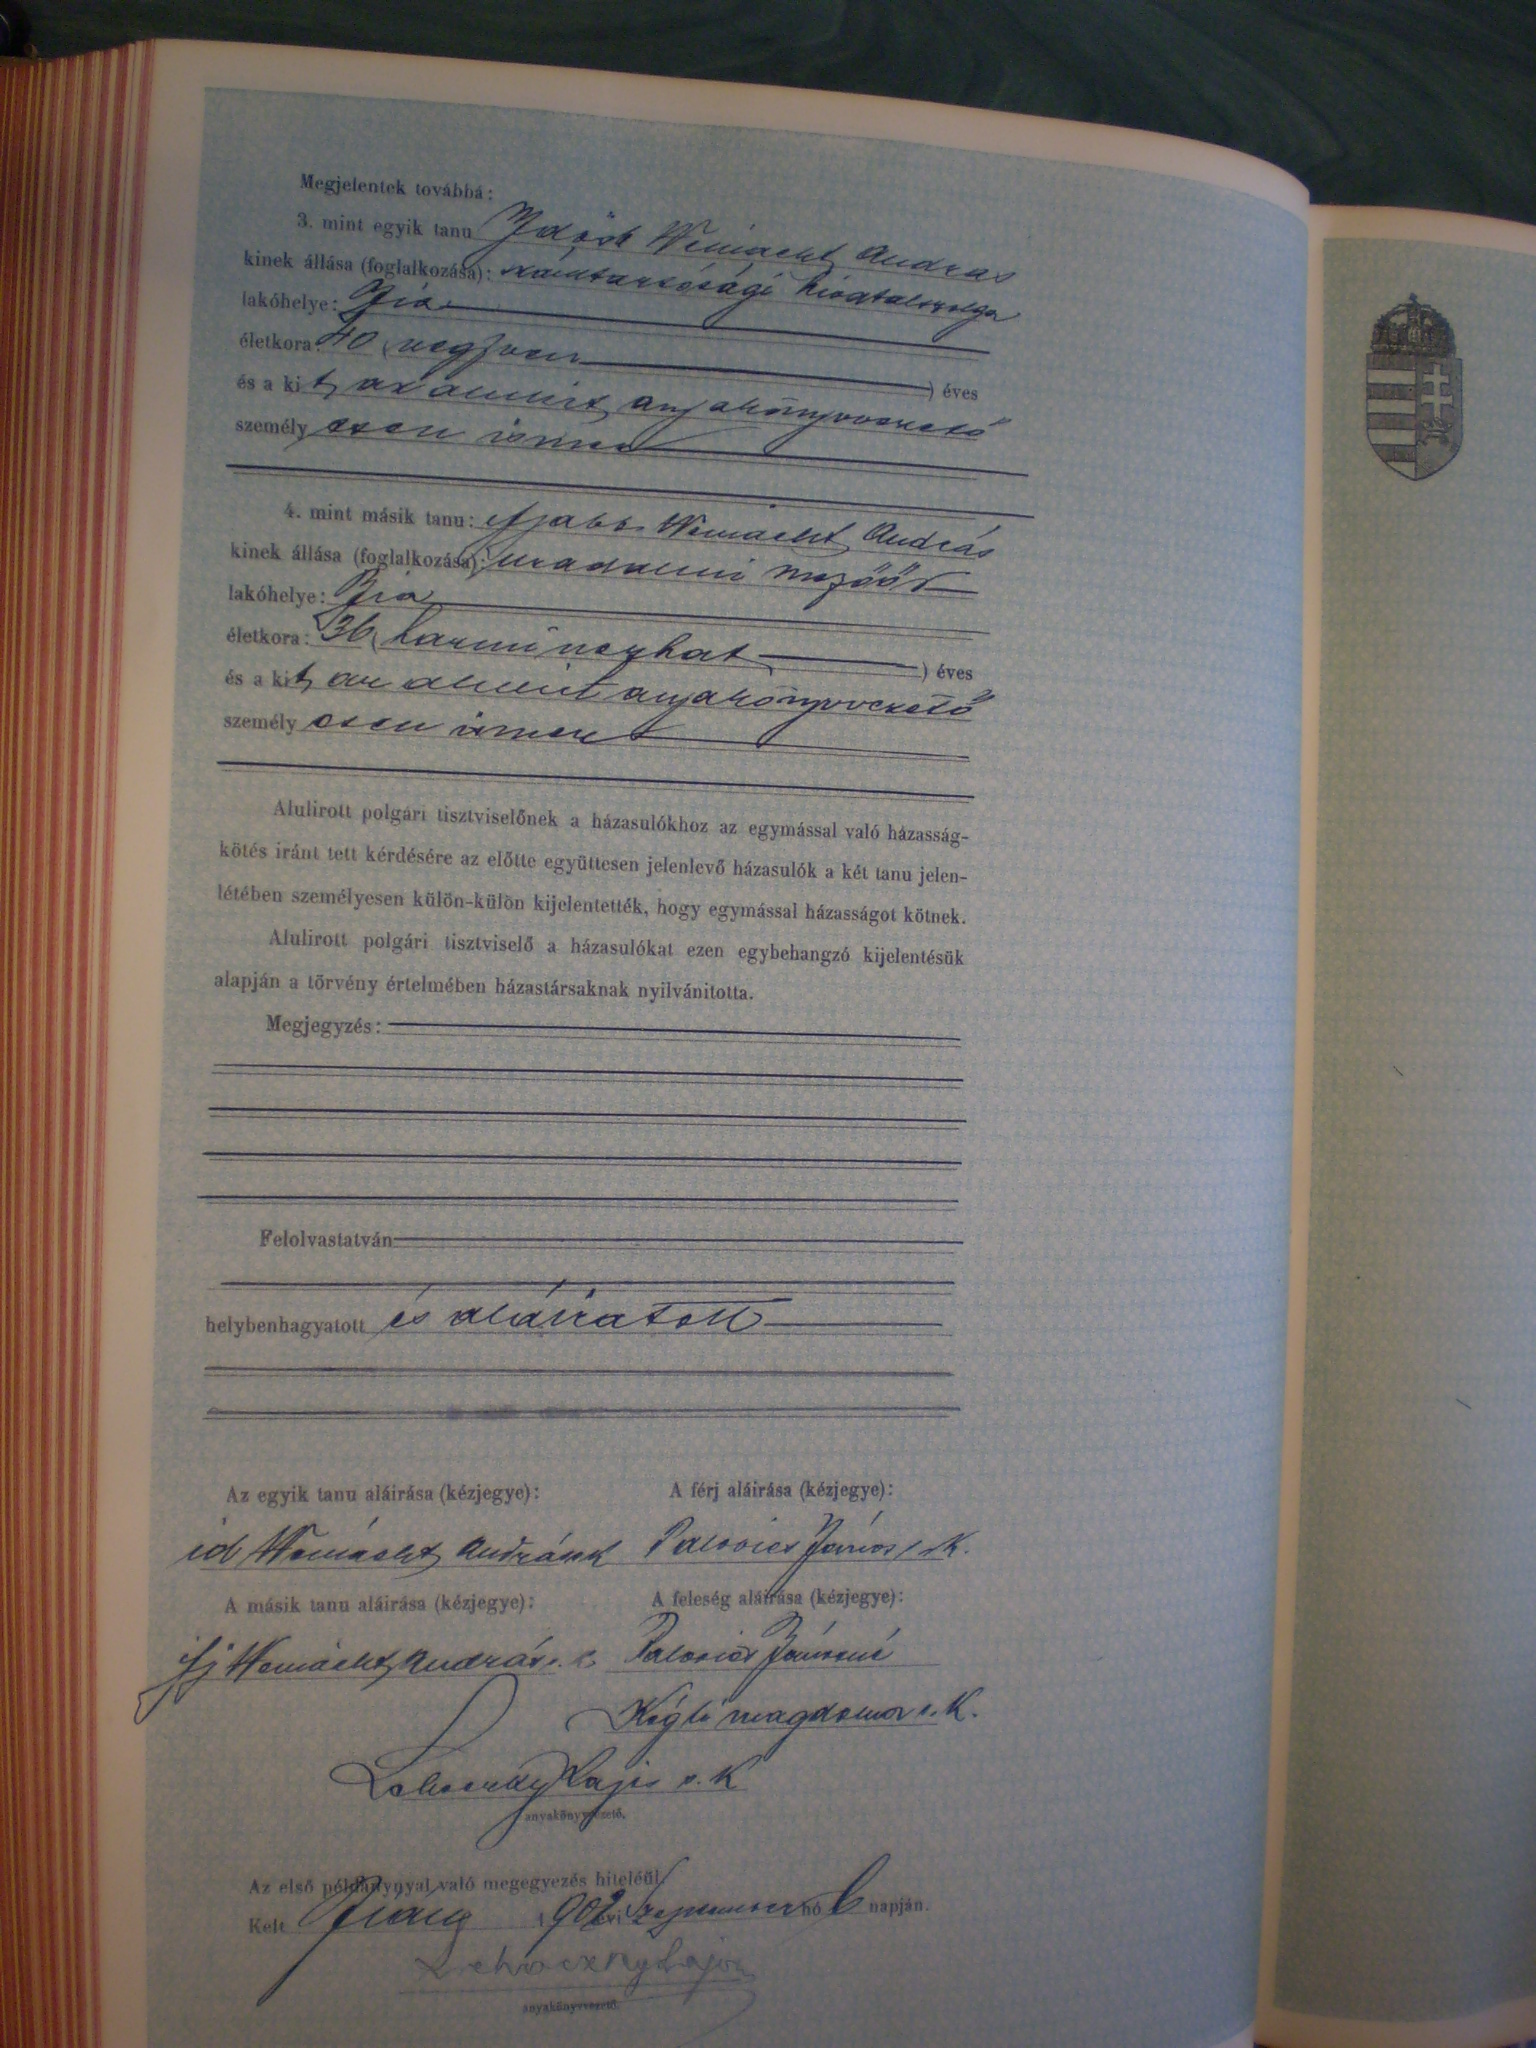 Megjelentek továbbá:
3. mint egyik tanu Idősb Weinacht András
kinek állása (foglalkozása): számtartósági hivatalszolga
lakóhelye: Bia
életkora: 40 (negyven ) éves
és a kit az alulirt anyakönyvvezető
személyesen ismer
4. mint másik tanu: ifjabb Weinacht András
kinek állása (foglalkozása): uradalmi mezőőr
lakóhelye: Bia
életkora: 36 (harminczhat ) éves
és a kit az alulirt anyakönyvvezető
személyesen ismer
Alulirott polgári tisztviselőnek a házasulókhoz az egymással való házasság-
kötés iránt tett kérdésére az előtte együttesen jelenlevő házasulók a két tanu jelen-
létében személyesen külön-külön kijelentették, hogy egymással házasságot kötnek.
Alulirott polgári tisztviselő a házasulókat ezen egybehangzó kijelentésük
alapján a törvény értelmében házastársaknak nyilvánitotta.
Megjegyzés:
Felolvastatván
helybenhagyatott és aláiratott
Az egyik tanu aláirása (kézjegye): A férj aláirása (kézjegye):
id Weinacht András s.k. Palovics János s.k.
A másik tanu aláirása (kézjegye): A feleség aláirása (kézjegye):
ifj Weinacht András s.k. Palovics Jánosné
Kégli Magdolna s.k.
Lehoczky Lajos s.k.
anyakönyvvezető.
Az első példánynyal való megegyezés hiteléül.
Kelt Bián 1902 évi szeptember hó 6 napján.
Lehoczky Lajos
anyakönyvvezető.